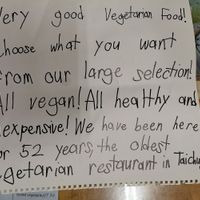 Very good Vegetarian Food!
Choose what you want
From our large selection!
All vegan! All healthy and
expensive! We have been here
for 52 years, the oldest
vegetarian restaurant in Taichu